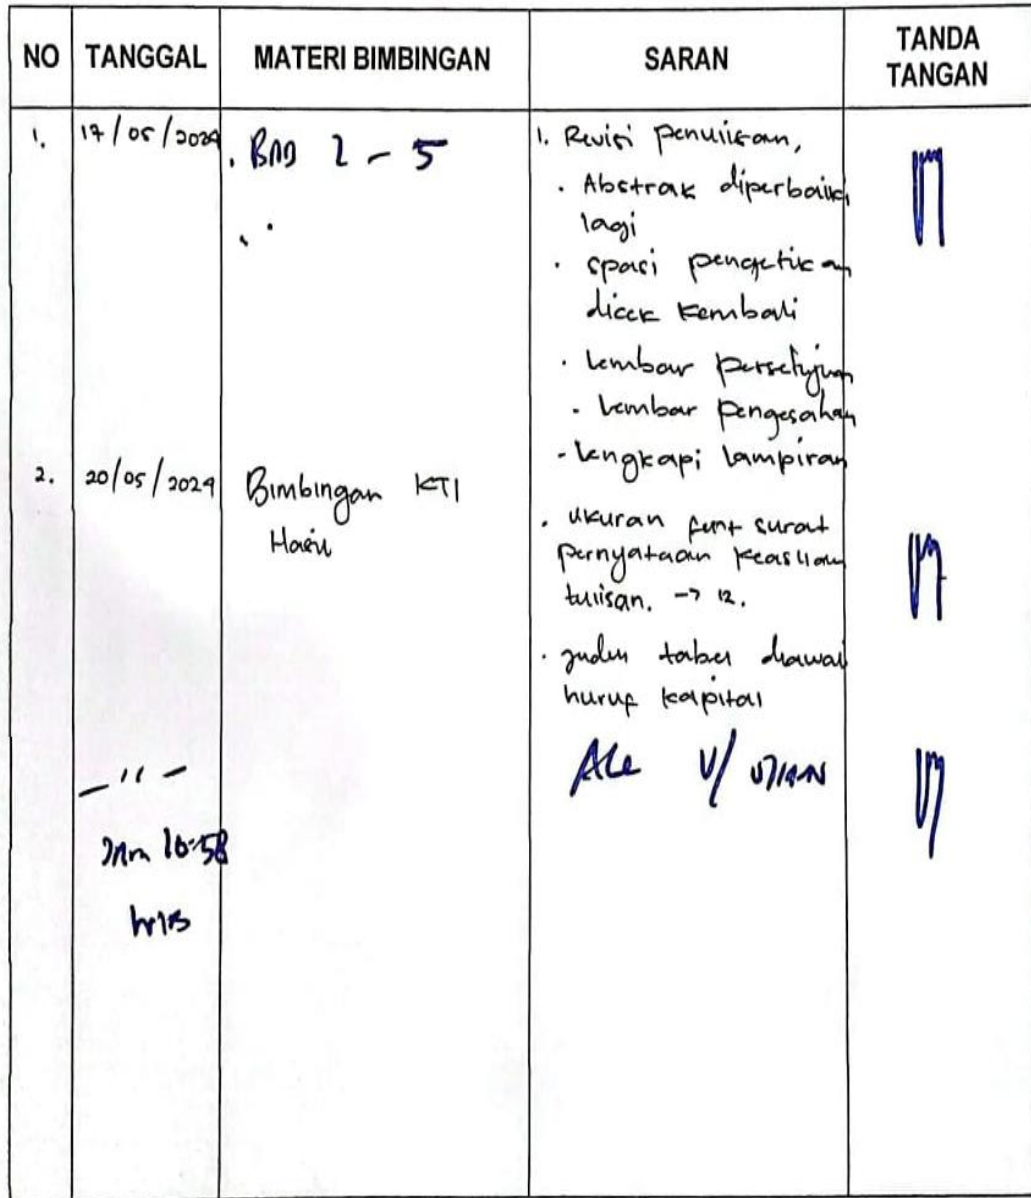 NO TANGGAL MATERI BIMBINGAN SARAN TANDA TANGAN
1. 17/05/2024 . BAB 2 - 5 1. Revisi penulisan,
. Abstrak diperbaiki
lagi
. spasi pengetikan
dicek kembali
. lembar persetujuan
. lembar pengesahan
- lengkapi lampiran
2. 20/05/2024 Bimbingan KTI
Hasil
. ukuran font surat
pernyataan keaslian
tulisan. -> 12.
. judul tabel diawali
huruf kapital
- " - Acc U/ UJIAN
JAM 10:58
WIB